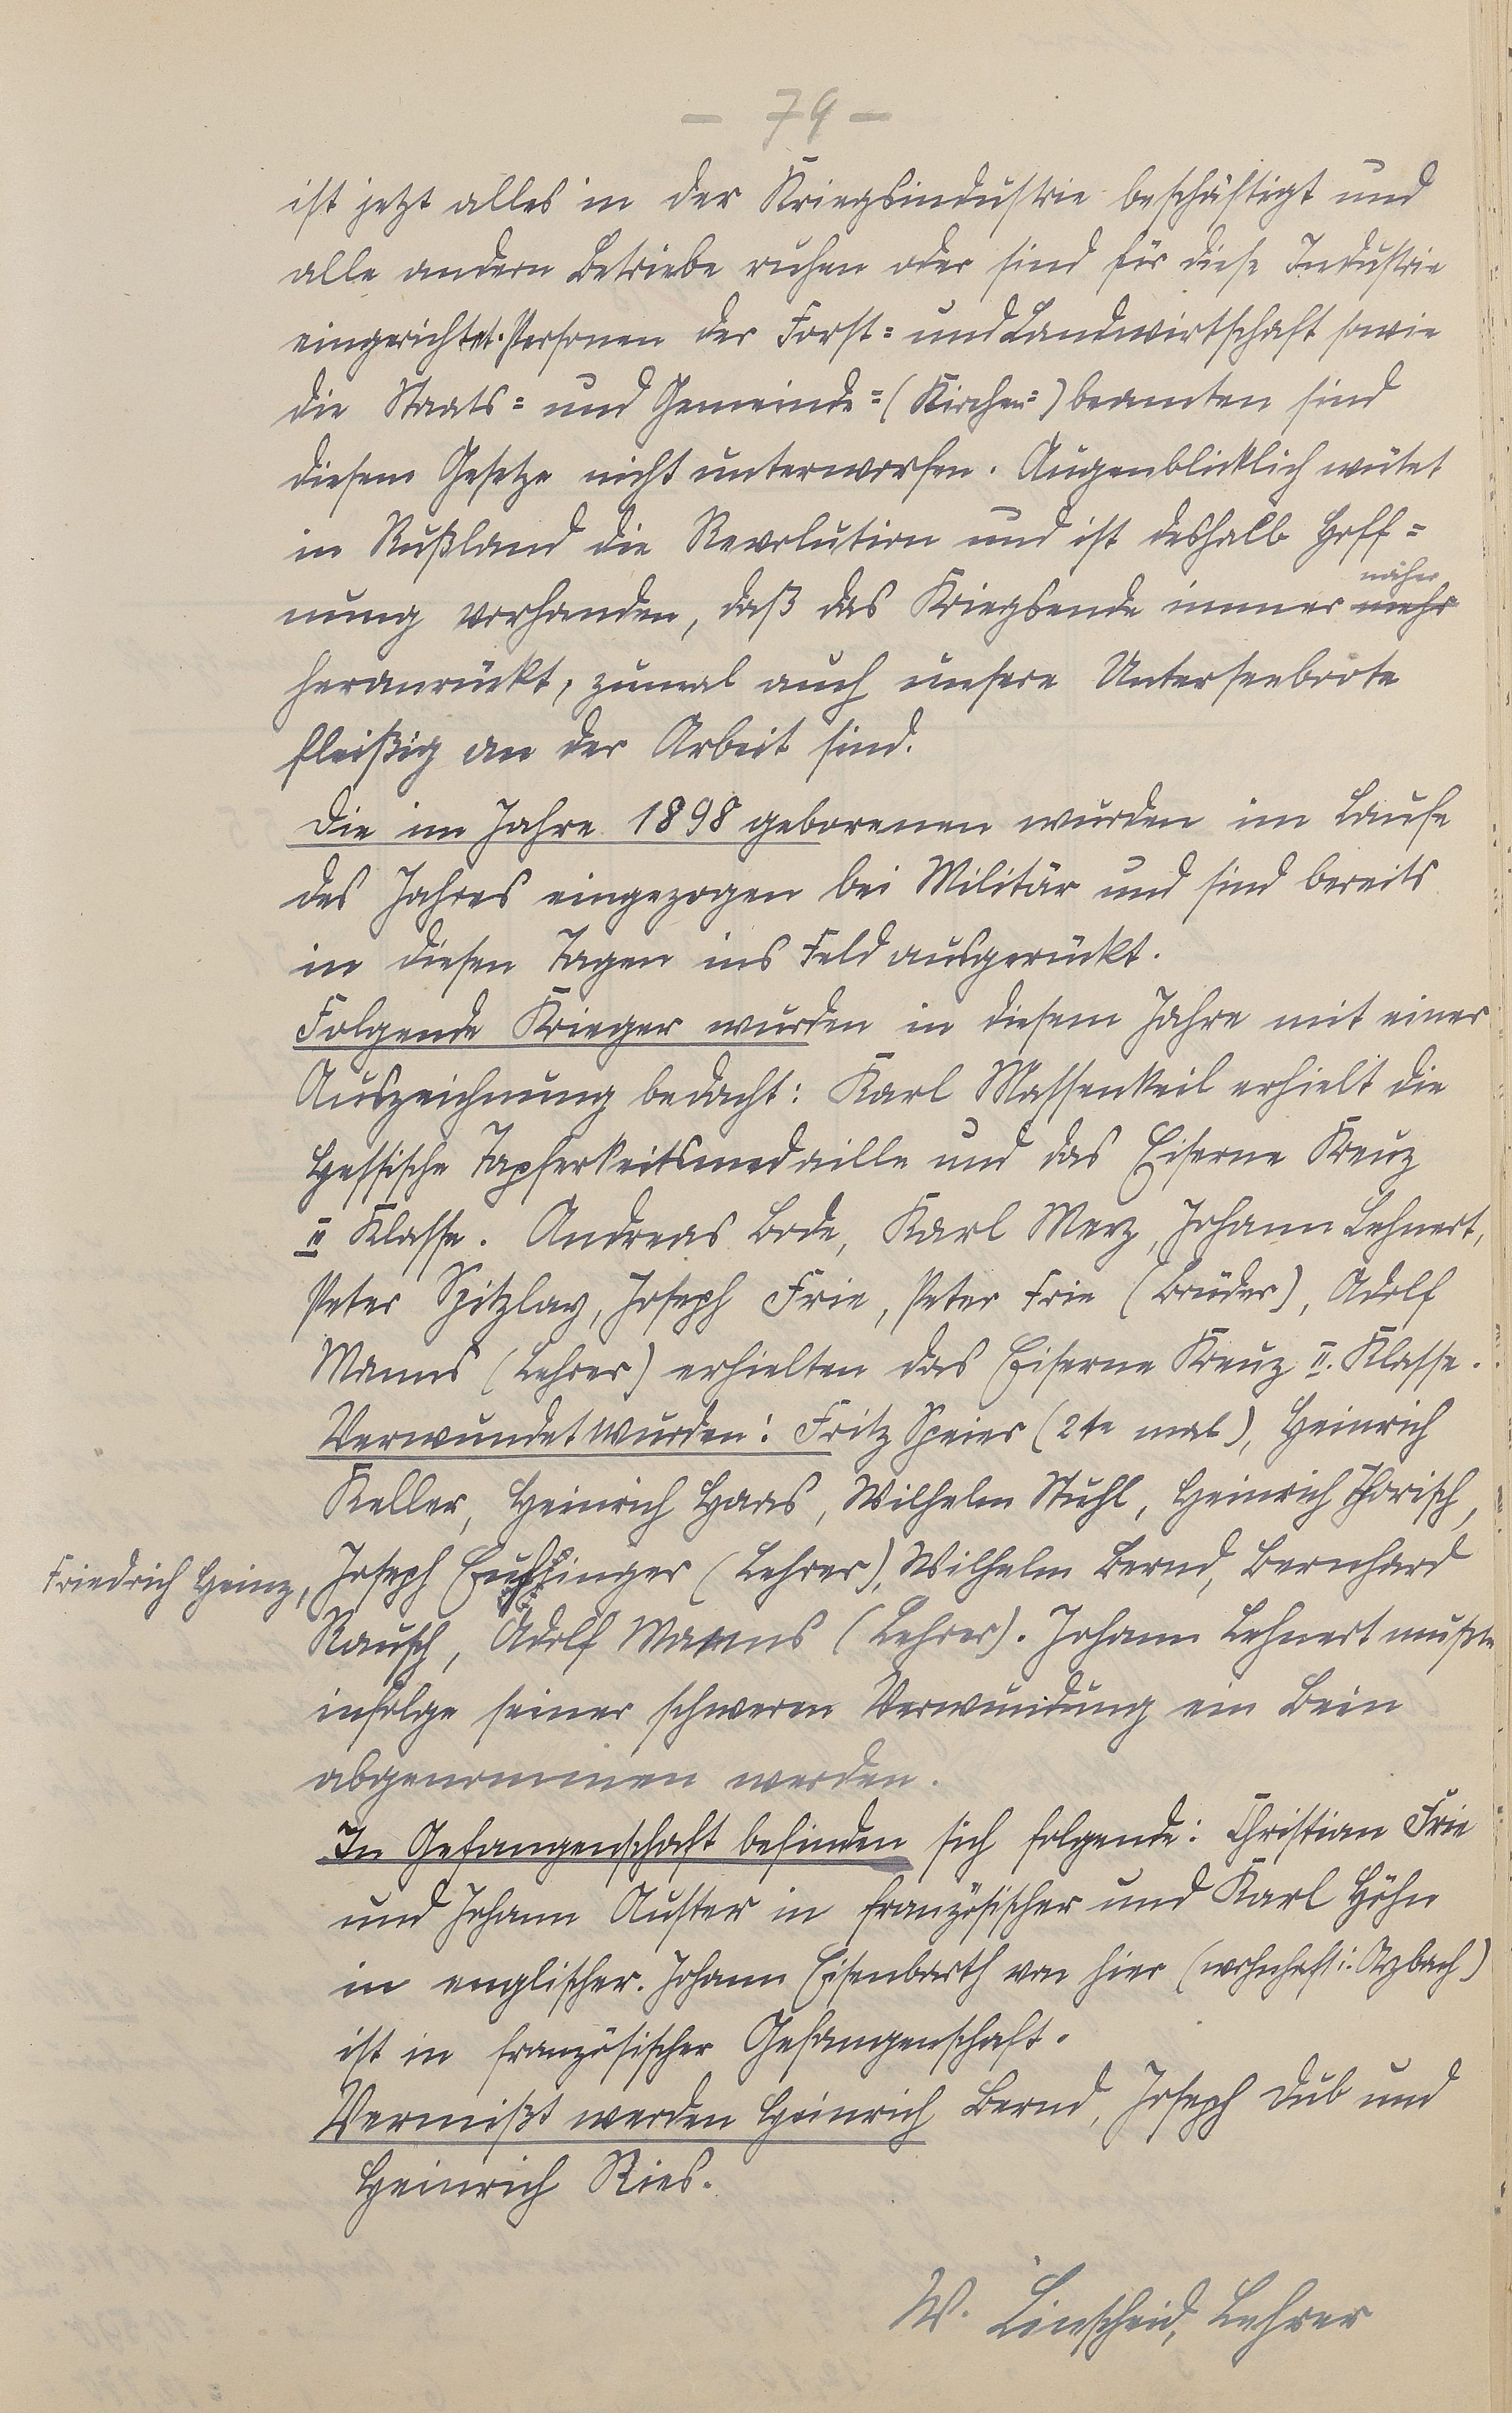 — 79 —
ist jetzt alles in der Kriegsindustrie beschäftigt und
alle andern Betriebe ruhen oder sind für diese Industrie
eingerichtet. Personen der Forst= und Landwirtschaft sowie
die Staats= und Gemeinde=(Kirchen=)beamten sind
diesem Gesetze nicht unterworfen. Augenblicklich wütet
in Rußland die Revolution und ist deshalb Hoff=
näher
nung vorhanden, daß das Kriegsende immer mehr
heranrückt, zumal auch unsere Unterseeboote
fleißig an der Arbeit sind.
Die im Jahre 1898 geborenen wurden im Laufe
des Jahres eingezogen bei Militär und sind bereits
in diesen Tagen ins Feld ausgerückt.
Folgende Krieger wurden in diesem Jahre mit einer
Auszeichnung bedacht: Karl Massenkeil erhielt die
Hessische Tapferkeitsmedaille und das Eiserne Kreuz
II Klasse. Andreas Bode, Karl Merz, Johann Lehnert,
Peter Spitzlay, Joseph Frie, Peter Frie (Brüder), Adolf
Manns (Lehrer) erhielten das Eiserne Kreuz II. Klasse.
Verwundet wurden: Fritz Speier (2te mal), Heinrich
Keller, Heinrich Haas, Wilhelm Stuhl, Heinrich Thorisch,
Friedrich Heinz, Joseph (Lehrer), Wilhelm Bernd, Bernhard
Rausch, Adolf Manns (Lehrer). Johann Lehnert mußte
infolge seiner schweren Verwundung ein Bein
abgenommen werden.
In Gefangenschaft befinden sich folgende: Christian Frie
und Johann Auster in französischer und Karl Höhn
in englischer. Johann Eisenbarth von hier (wohnhaft i. Atzbach)
ist in französischer Gefangenschaft.
Vermißt werden Heinrich Bernd, Joseph Dub und
Heinrich Ries.
W. Linscheid, Lehrer